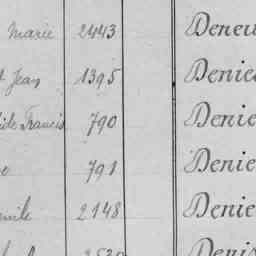 Marie 2443 Deneu
Jean 1395 Denie
ide Francis 790 Denie
791 Denie
mile 2148 Denie
2530 Denis